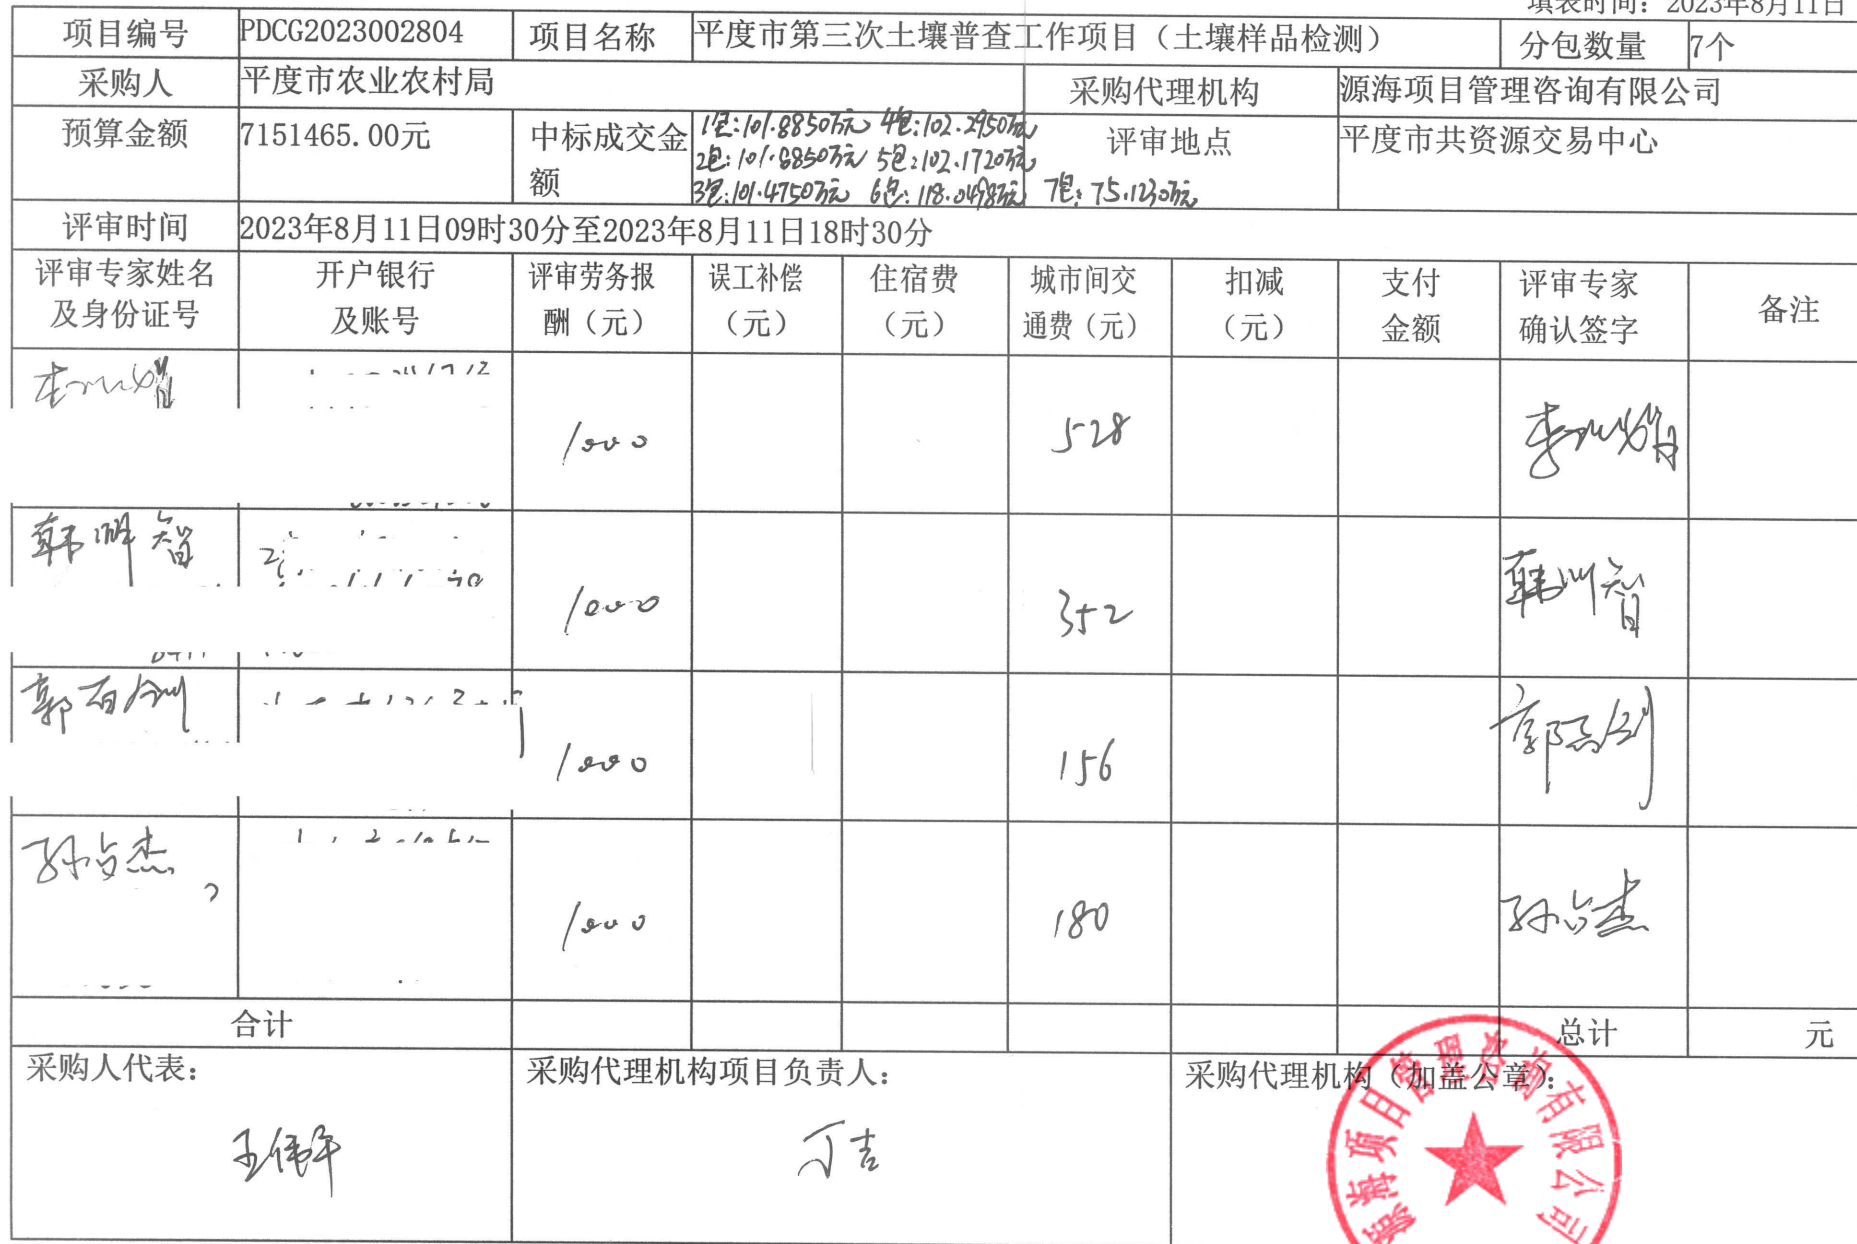 填表时间：2023年8月11日
项目编号 PDCG2023002804 项目名称 平度市第三次土壤普查工作项目（土壤样品检测） 分包数量 7个
采购人 平度市农业农村局 采购代理机构 源海项目管理咨询有限公司
预算金额 7151465.00元 中标成交金额 评审地点 平度市共资源交易中心
1包:101.8850万元 4包:102.2950万元
2包:101.8850万元 5包:102.1720万元
3包:101.4750万元 6包:118.0498万元 7包:75.1230万元
评审时间 2023年8月11日09时30分至2023年8月11日18时30分
评审专家姓名及身份证号 开户银行及账号 评审劳务报酬（元） 误工补偿（元） 住宿费（元） 城市间交通费（元） 扣减（元） 支付金额 评审专家确认签字 备注
1000 528
韩 智 1000 352 韩 智
郭 1000 156 郭
孙占杰 1000 180 孙占杰
合计 总计 元
采购人代表： 采购代理机构项目负责人： 采购代理机构（加盖公章）：
王伟 丁吉
源海项目管理咨询有限公司